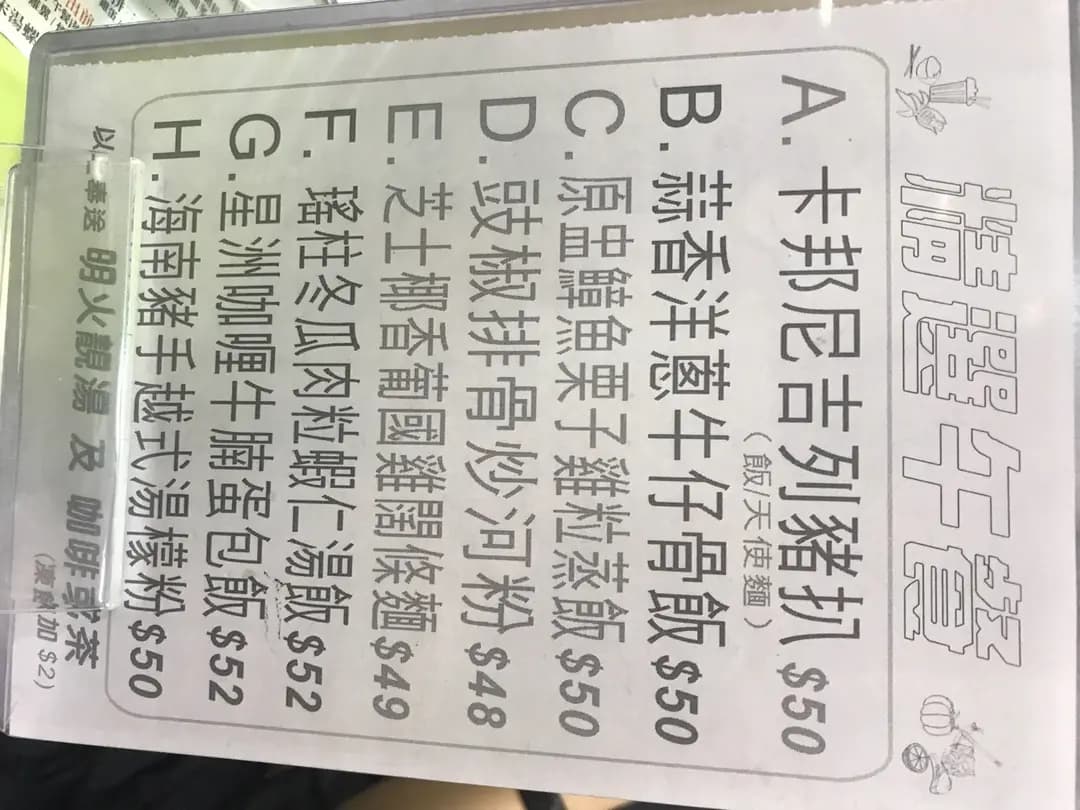 精選午餐
A. 卡邦尼吉列豬扒 $50
(飯/天使麵)
B. 蒜香洋蔥牛仔骨飯 $50
C. 原盅鱔魚栗子雞粒蒸飯 $50
D. 豉椒排骨炒河粉 $48
E. 芝士椰香葡國雞闊條麵 $49
F. 瑤柱冬瓜肉粒蝦仁湯飯 $52
G. 星洲咖哩牛腩蛋包飯 $52
H. 海南豬手越式湯檬粉 $50
以上奉送 明火靚湯 及 咖啡或茶
(凍飲加 $2)